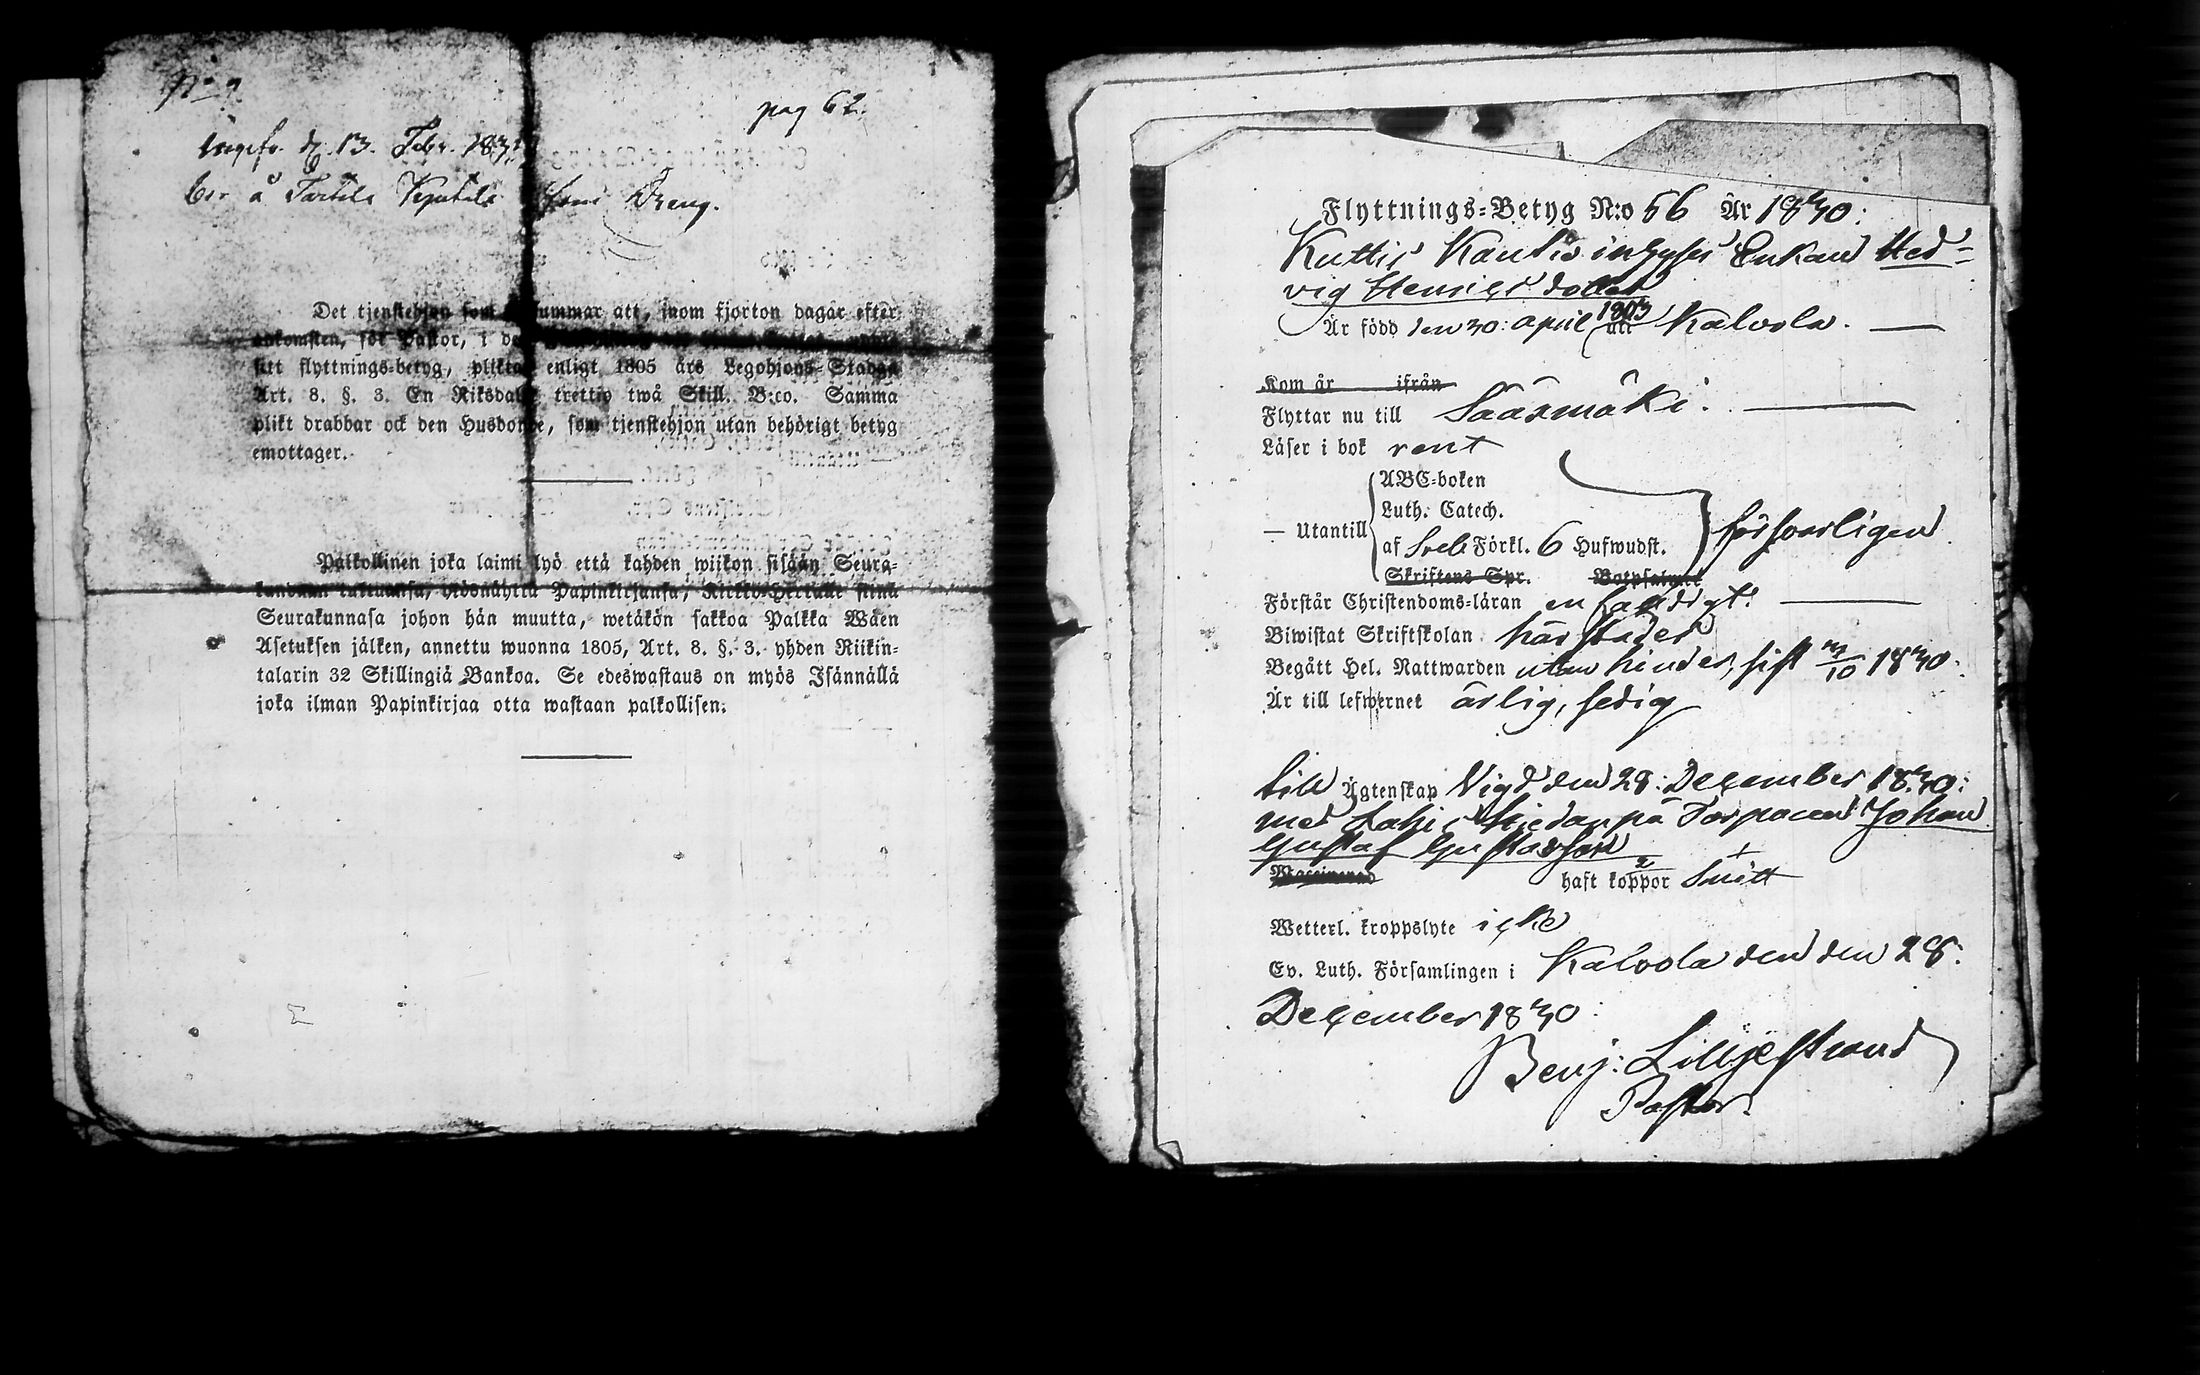 pag 62.
d. 13. Febr.
bor å Dreng.
Det tjenstehjon som att, inom fjorton dagar efter
ankomsten, för Pastor, i
sitt flyttnings-betyg, enligt 1805 års Legohjons-Stadga
Art. 8. §. 3. En trettio twå Skill. B:co. Samma
plikt drabbar ock den som tjenstehjon utan behörigt betyg
emottager.
Palkollinen joka laimi lyö että kahden wiikon sisään Seura-
Papinkirjansa, siinä
Seurakunnasa johon hän muutta, wetäkön sakkoa Palkka Wäen
Asetuksen jälken, annettu wuonna 1805, Art. 8. §. 3. yhden Riikin-
talarin 32 Skillingiä Bankoa. Se edeswastaus on myös Isännällä
joka ilman Papinkirjaa otta wastaan palkollisen.
Flyttnings-Betyg N:o 56 År 1830:
Kuttis Enkan Hed-
vig
Är född den 30: april 1803 uti Kalvola.
Kom år ifrån
Flyttar nu till Sääxmäki.
Läser i bok rent
ABC-boken
Luth. Catech.
— Utantill
af Sveb. Förkl. 6 Hufwudst.
försvarligen
Skriftens Spr.
Förstår Christendoms-läran enfaldigt.
Biwistat Skriftskolan härstädes
Begått Hel. Nattwarden utan hinder, sist 3/10 1830.
Är till lefwernet ärlig, sedig
till Ägtenskap Vigd den 28: December 1830:
med Torparen Johan
Gustaf Gustafsson
haft koppor
Wetterl. kroppslyte icke
Ev. Luth. Församlingen i Kalvola den den 28:
December 1830:
Benj: Lilljestrand
Pastor.